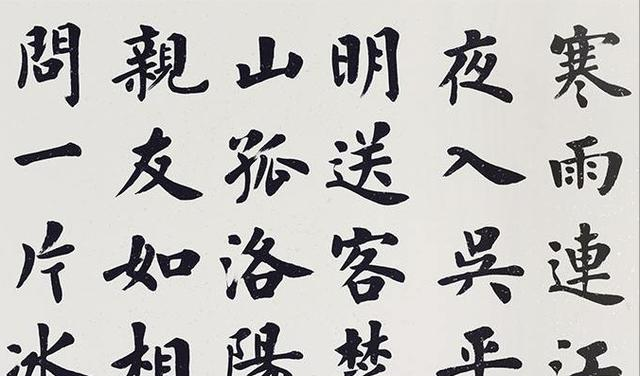 寒雨連江
夜入吳平
明送客楚
山孤洛陽
親友如相
問一片冰